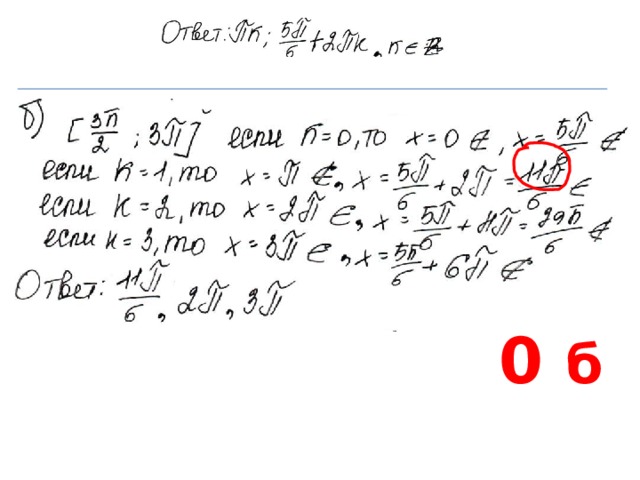 Ответ: πк; 5π/6 + 2πк, к ∈ Z
б) [3π/2 ; 3π] если к=0, то x=0 ∉, x= 5π/6 ∉
если к=1, то x=π ∉, x= 5π/6 + 2π = 11π/6 ∈
если к=2, то x=2π ∈, x= 5π/6 + 4π = 29π/6 ∉
если к=3, то x=3π ∈, x= 5π/6 + 6π ∉
Ответ: 11π/6, 2π, 3π
0 б